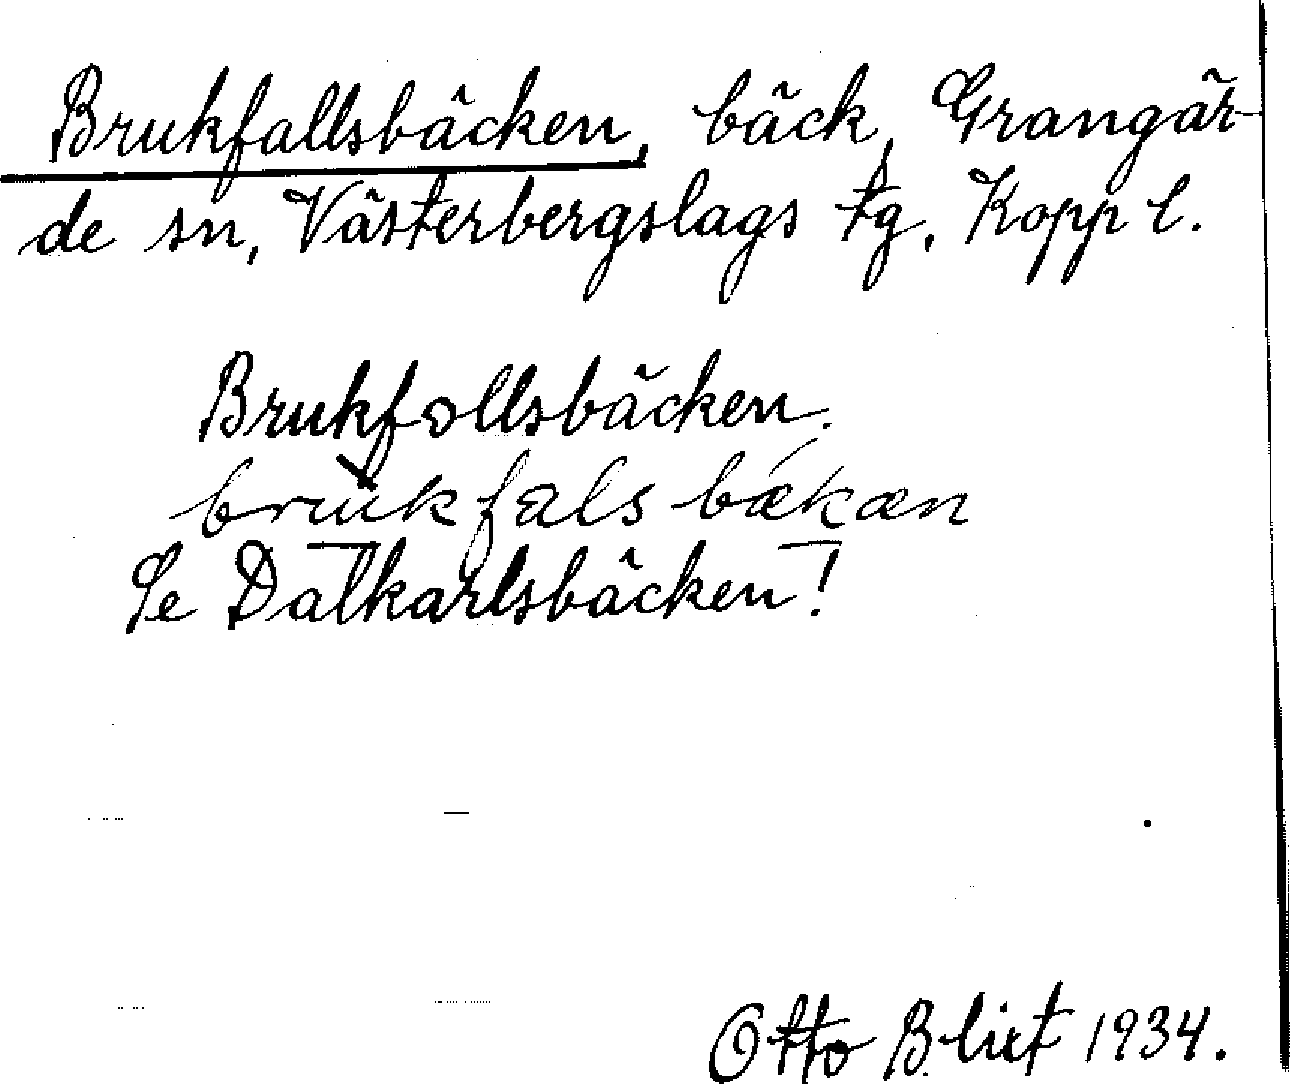 Brukfallsbäcken, bäck, Grangär-
de sn, Västerbergslags tg. Kopp l.
Brukfallsbäcken.
brùkfalsbǽkæn
Se Dalkarlsbäcken!
Otto Blixt 1934.